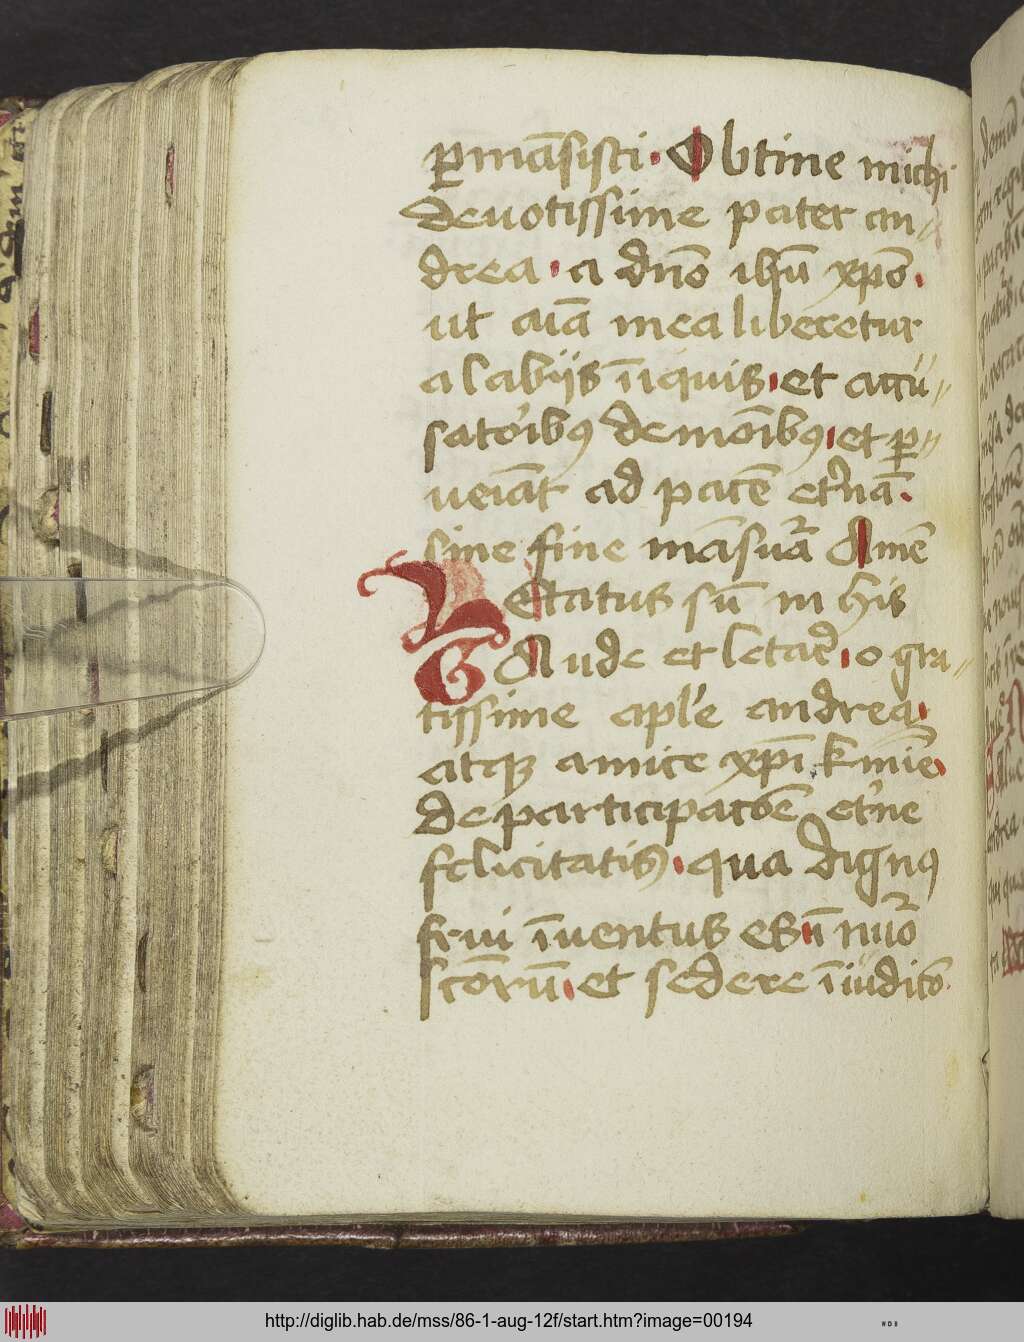 ꝑmāsisti. Obtine michi
deuotissime pater an⸗
drea. a dn̄o ih̄u xp̄o.
ut aīa mea liberetur
a labijs īiquis. et accu⸗
satoribꝰ demōibꝰ. et ꝑ⸗
ueiāt ad patrē etnā.
sine fine māsurā Amē
Letatus sū in his
GAude et letare. o gra⸗
tissime aple andrea.
atqꝫ amice xp̄i kmīe.
de participacōe etne
felicitatis. qua dignꝰ
frui īuentus es. ī nuo
scōrū. et sedere ī iudico.
http://diglib.hab.de/mss/86-1-aug-12f/start.htm?image=00194